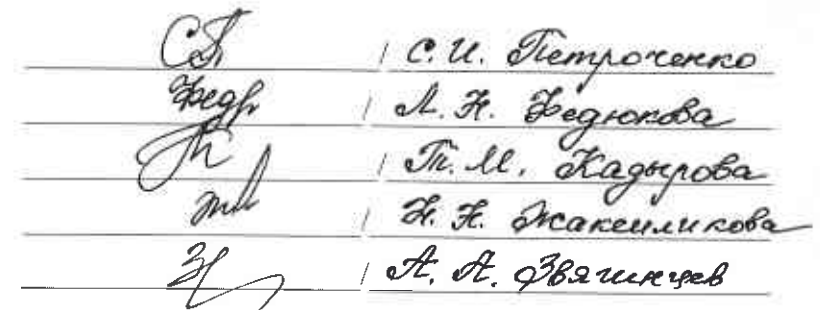 / С. И. Петроченко
Федр / Л. Н. Федюкова
/ Т. М. Кадырова
/ Н. Н. Жаксиликова
/ А. А. Звягинцев